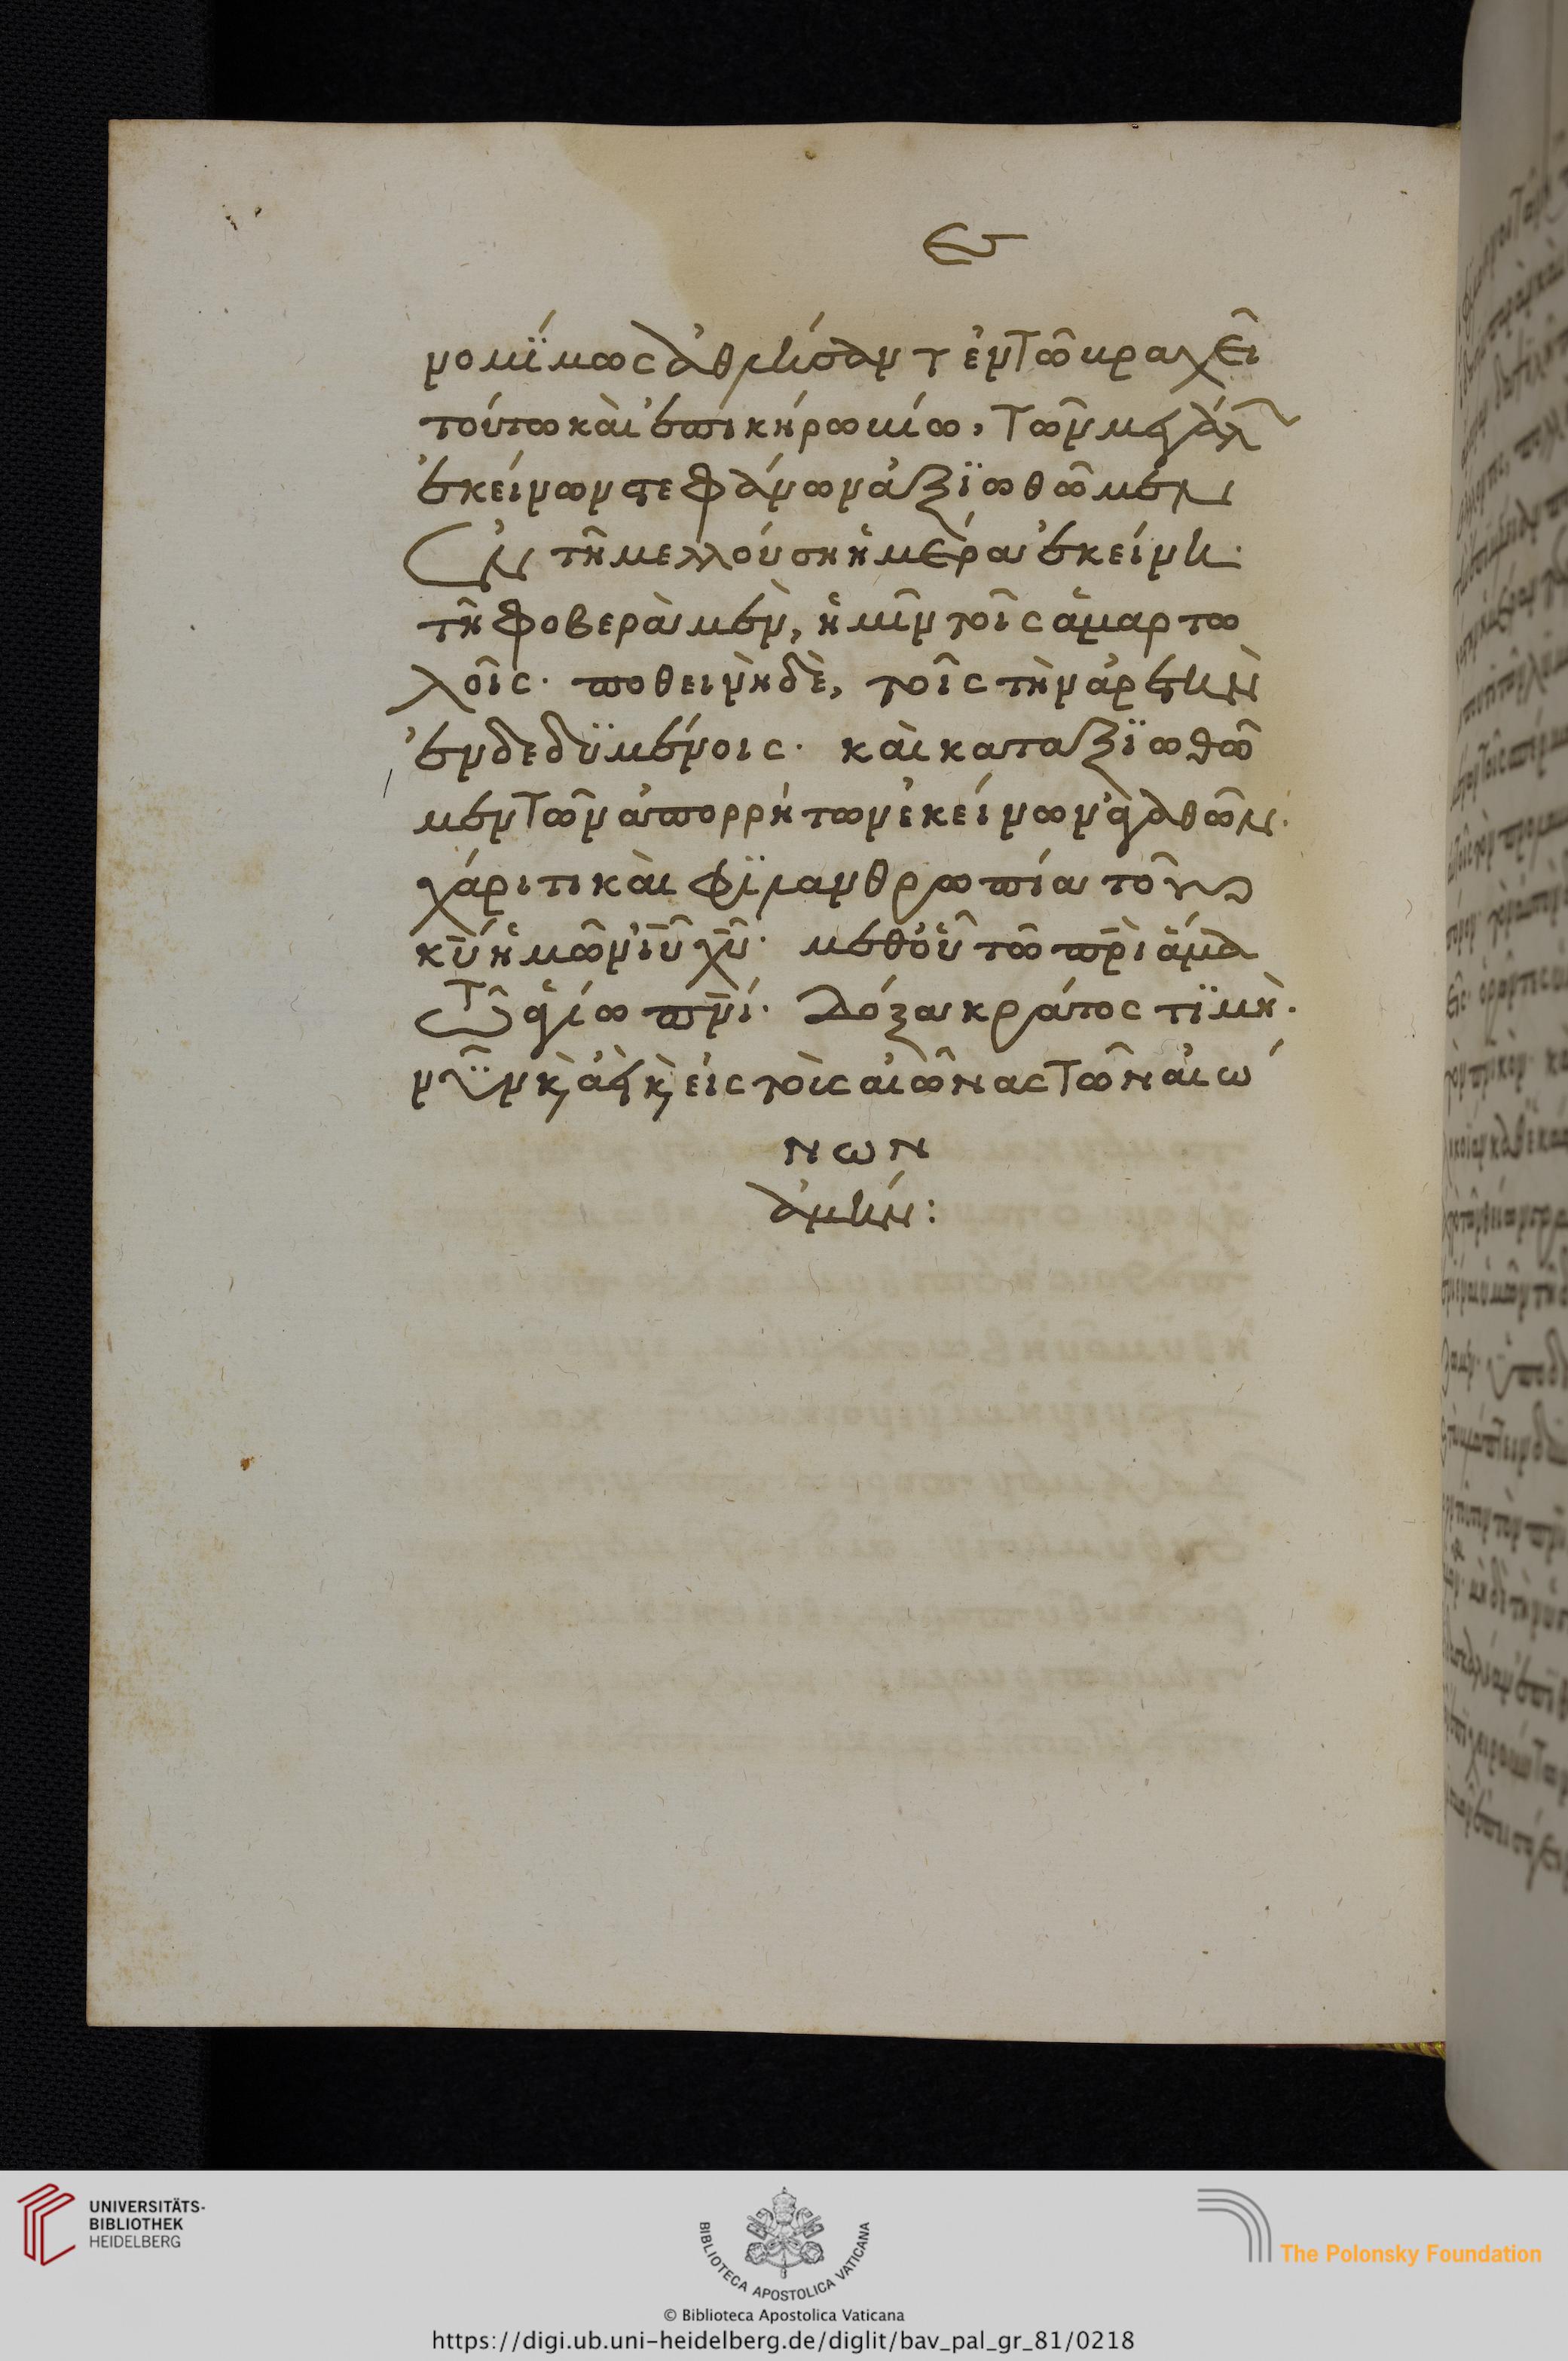 νομίμως ἀθλήσαντ ἐν τῶ βραχεῖ
τούτω καὶ ἐπικήρω βίω, τῶν μεγάλ
ἐκείνων στεφάνων ἀξϊωθῶμεν
ἐν τῆ μελλούση ἡμέρα ἐκείνη.
τῆ φοβερᾶ μὲν, ἡμῖν τοῖς ἁμαρτω
λοῖς. ποθεινῆ δὲ, τοῖς τὴν ἀρετὴν
ἐνδεδϋμένοις. καὶ καταξϊωθῶ
μεν τῶν ἀπορρήτων ἐκείνων ἀγαθῶν.
χάριτι καὶ φϊλανθρωπία τοῦ
κ̅υ̅ ἡμῶν ι̅υ̅ χ̅υ̅. μεθ' οὗ τῶ π̅ρ̅ι̅ ἅμα
τῶ ἁγίω π̅ν̅ι̅. δόξα κράτος τϊμὴ.
νῦν κ, ἀεὶ κ, εἰς τοὺς αἰῶνας τῶν αἰώ
νων
ἀμήν:
UNIVERSITÄTS-
BIBLIOTHEK
HEIDELBERG
BIBLIOTECA APOSTOLICA VATICANA
The Polonsky Foundation
© Biblioteca Apostolica Vaticana
https://digi.ub.uni-heidelberg.de/diglit/bav_pal_gr_81/0218